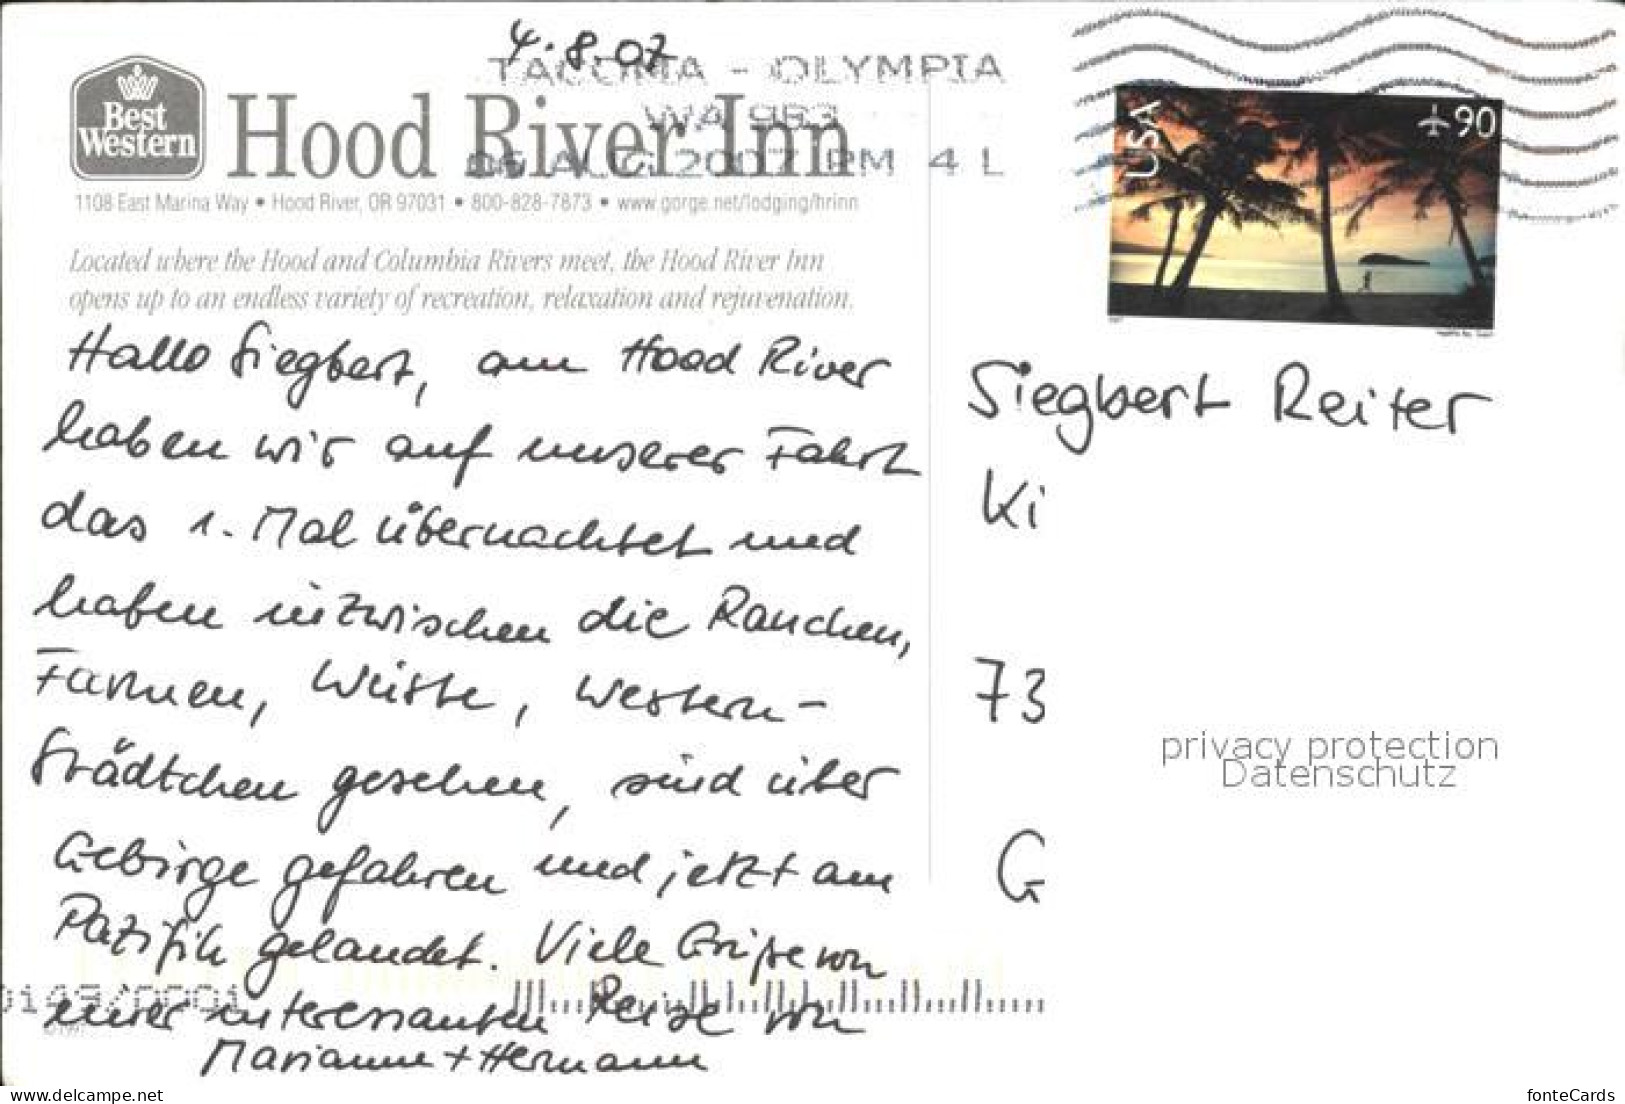 4.8.07
TACOMA - OLYMPIA
WA 983
06 AUG 2007 PM 4 L
Best
Western
Hood River Inn
1108 East Marina Way • Hood River, OR 97031 • 800-828-7873 • www.gorge.net/lodging/hrinn
Located where the Hood and Columbia Rivers meet, the Hood River Inn
opens up to an endless variety of recreation, relaxation and rejuvenation.
USA
90
Hallo Siegbert, am Hood River
haben wir auf unserer Fahrt
das 1. Mal übernachtet und
haben inzwischen die Ranchen,
Farmen, Wüste, Western-
Städtchen gesehen, sind über
Gebirge gefahren und jetzt am
Pazifik gelandet. Viele Grüße von
einer interessanten Reise von
Marianne + Hermann
Siegbert Reiter
Ki
73
G
privacy protection
Datenschutz
www.delcampe.net
fonteCards